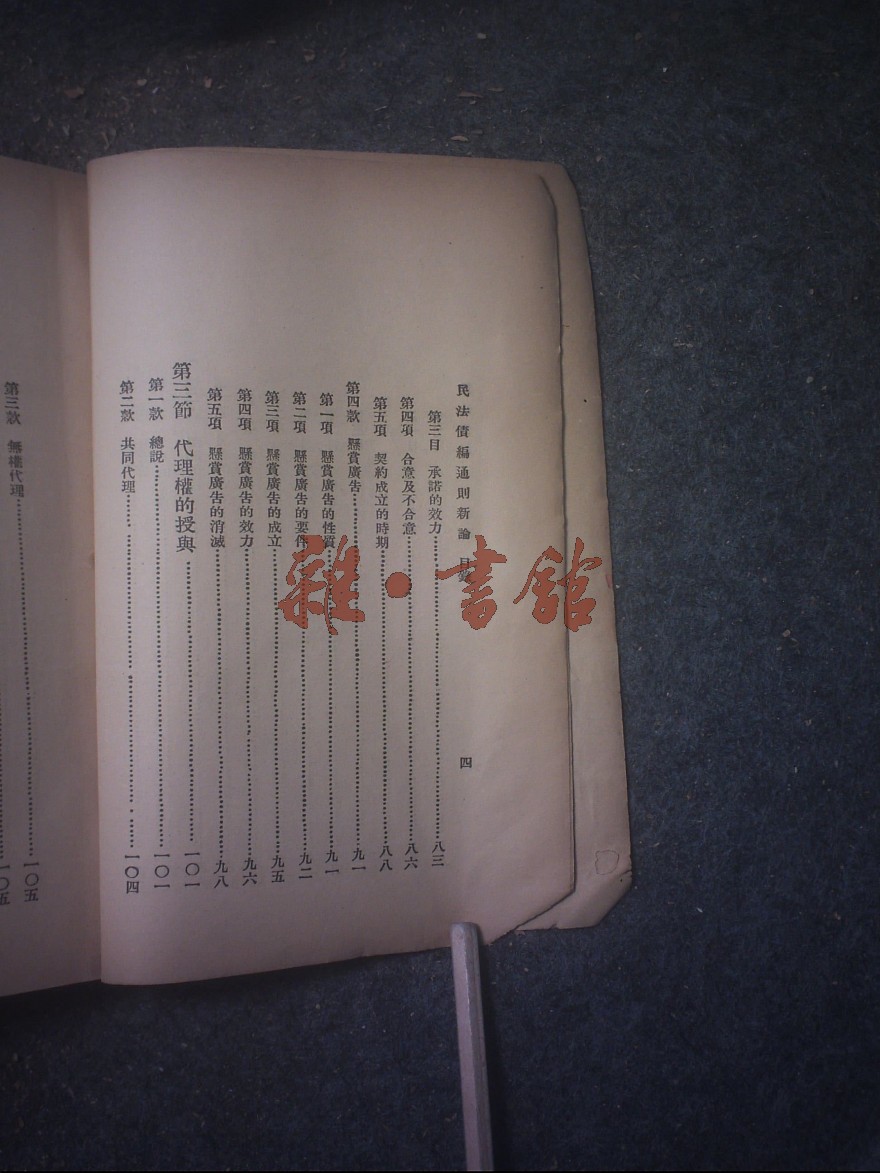 民法債編通則新論 目錄 四
第三目 承諾的效力 八三
第四項 合意及不合意 八六
第五項 契約成立的時期 八八
第四款 懸賞廣告 九一
第一項 懸賞廣告的性質 九一
第二項 懸賞廣告的要件 九二
第三項 懸賞廣告的成立 九五
第四項 懸賞廣告的效力 九六
第五項 懸賞廣告的消滅 九八
第三節 代理權的授與 一〇一
第一款 總說 一〇一
第二款 共同代理 一〇四
第三款 無權代理 一〇五
一〇五
雜·書館